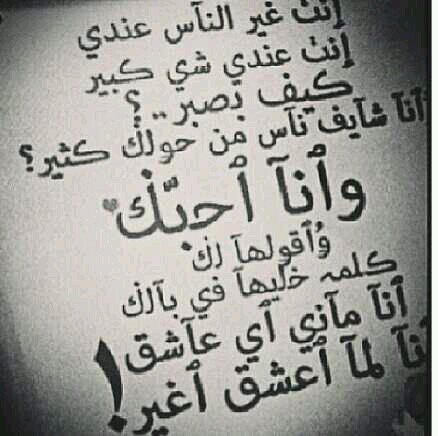 إنت غير النآس عندي
إنت عندي شي كبير
كيف بصبر .. ؟
أنآ شآيف نآس من حولك كثير ؟
وأنآ أحبّك
وأقولهآ لك
كلمه خليهآ في بآلك
أنآ مآني أي عآشق
أنآ لمآ أعشق أغير !